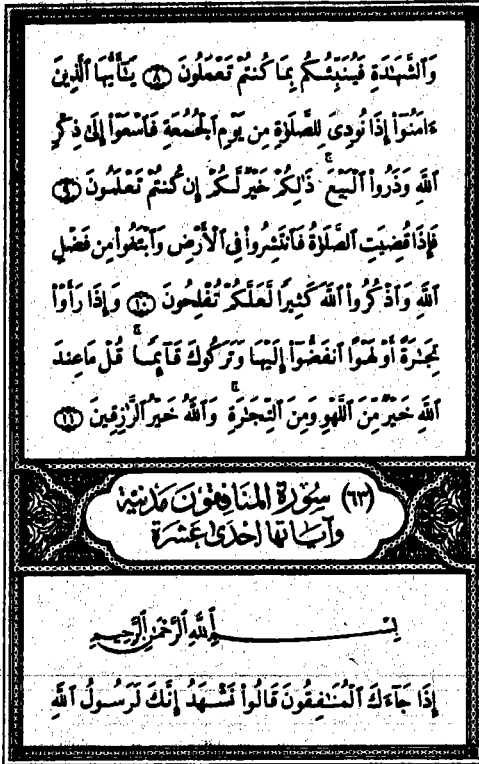 وَٱلشَّهَٰدَةِ فَيُنَبِّئُكُم بِمَا كُنتُمْ تَعْمَلُونَ ٨ يَٰٓأَيُّهَا ٱلَّذِينَ
ءَامَنُوٓا۟ إِذَا نُودِىَ لِلصَّلَوٰةِ مِن يَوْمِ ٱلْجُمُعَةِ فَٱسْعَوْا۟ إِلَىٰ ذِكْرِ
ٱللَّهِ وَذَرُوا۟ ٱلْبَيْعَ ۚ ذَٰلِكُمْ خَيْرٌ لَّكُمْ إِن كُنتُمْ تَعْلَمُونَ ٩
فَإِذَا قُضِيَتِ ٱلصَّلَوٰةُ فَٱنتَشِرُوا۟ فِى ٱلْأَرْضِ وَٱبْتَغُوا۟ مِن فَضْلِ
ٱللَّهِ وَٱذْكُرُوا۟ ٱللَّهَ كَثِيرًا لَّعَلَّكُمْ تُفْلِحُونَ ١٠ وَإِذَا رَأَوْا۟
تِجَٰرَةً أَوْ لَهْوًا ٱنفَضُّوٓا۟ إِلَيْهَا وَتَرَكُوكَ قَآئِمًا ۚ قُلْ مَا عِندَ
ٱللَّهِ خَيْرٌ مِّنَ ٱللَّهْوِ وَمِنَ ٱلتِّجَٰرَةِ ۚ وَٱللَّهُ خَيْرُ ٱلرَّٰزِقِينَ ١١
(٦٣) سُورَة المنَافِقُونَ مَدَنِيَّة
وآيَاتها إحْدَى عَشْرَة
بِسْمِ ٱللَّهِ ٱلرَّحْمَٰنِ ٱلرَّحِيمِ
إِذَا جَآءَكَ ٱلْمُنَٰفِقُونَ قَالُوا۟ نَشْهَدُ إِنَّكَ لَرَسُولُ ٱللَّهِ